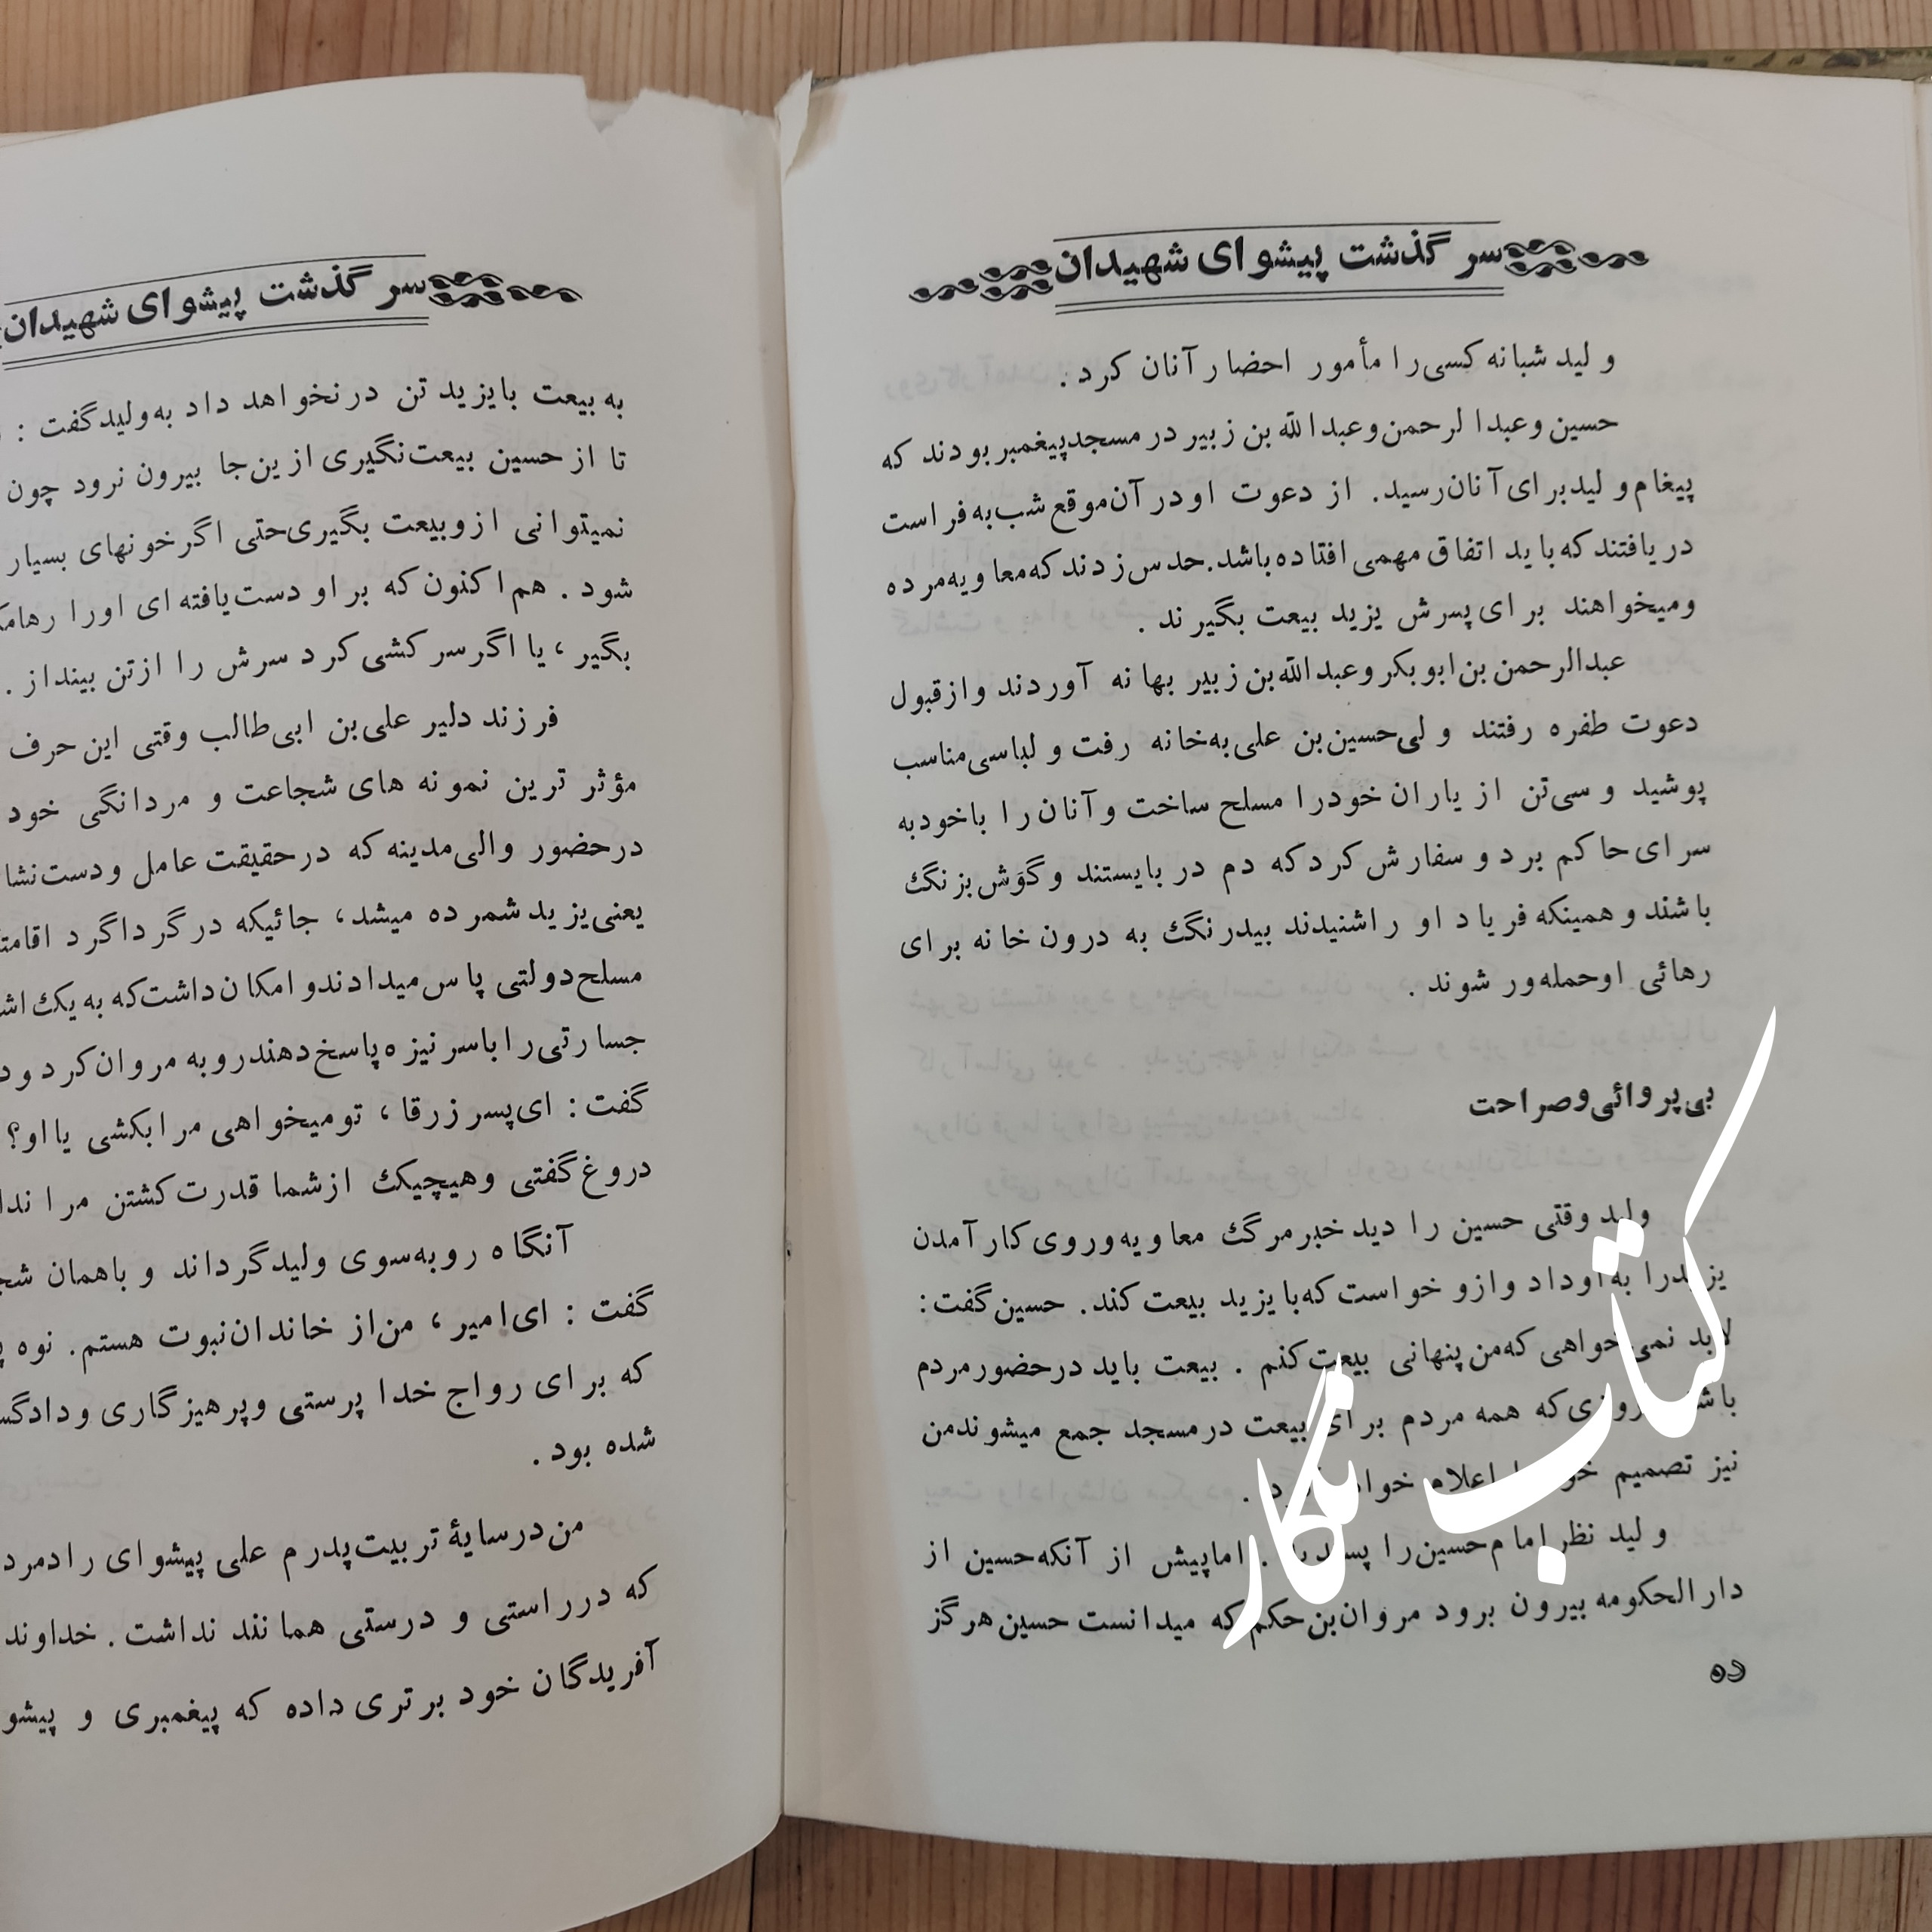 سرگذشت پیشوای شهیدان
ولید شبانه کسی‌را مأمور احضار آنان کرد .
حسین وعبدالرحمن وعبدالله بن زبیر در مسجد پیغمبر بودند که
پیغام ولید برای آنان رسید. از دعوت او در آن موقع شب به فراست
دریافتند که باید اتفاق مهمی افتاده باشد. حدس زدند که معاویه مرده
ومیخواهند برای پسرش یزید بیعت بگیرند .
عبدالرحمن بن ابوبکر وعبدالله بن زبیر بهانه آوردند وازقبول
دعوت طفره رفتند ولی حسین بن علی به خانه رفت و لباسی مناسب
پوشید و سی تن از یاران خودرا مسلح ساخت وآنان را باخود به
سرای حاکم برد و سفارش کرد که دم در بایستند وگوش بزنگ
باشند وهمینکه فریاد او راشنیدند بیدرنگ به درون خانه برای
رهائی اوحمله‌ور شوند .
بی‌پروائی وصراحت
ولید وقتی حسین را دید خبرمرگ معاویه وروی کار آمدن
یزیدرا به‌اوداد وازو خواست که با یزید بیعت کند. حسین گفت :
لابد نمی‌خواهی که من پنهانی بیعت کنم . بیعت باید درحضور مردم
باشد روزی که همه مردم برای بیعت درمسجد جمع میشوندمن
نیز تصمیم اعلام .
ولید نظر امام حسین را . اما پیش از آنکه حسین از
دارالحکومه بیرون برود مروان بن حکم که میدانست حسین هرگز
۵۵
کتاب نگار
سرگذشت پیشوای شهیدان
به بیعت بایزید تن درنخواهد داد به ولید گفت :
تا از حسین بیعت نگیری ازین‌جا بیرون نرود چون
نمیتوانی ازوبیعت بگیری حتی اگر خونهای بسیار
شود . هم اکنون که بر او دست یافته ای اورا
بگیر ، یا اگر سرکشی کرد سرش را ازتن بینداز .
فرزند دلیر علی بن ابی‌طالب وقتی این حرف
مؤثر ترین نمونه های شجاعت و مردانگی خود
درحضور والی مدینه که درحقیقت عامل ودست
یعنی یزید شمرده میشد، جائیکه در گرداگرد
مسلح دولتی پاس میدادندو امکان داشت که به یک
جسارتی را باسر نیزه پاسخ دهندروبه مروان کرد
گفت : ای پسر زرقا ، تومیخواهی مرابکشی یا او؟
دروغ گفتی وهیچیک ازشما قدرت کشتن مرا
آنگاه روبه‌سوی ولید گرداند و باهمان
گفت : ای امیر ، من از خاندان نبوت هستم. نوه
که برای رواج خدا پرستی وپرهیزگاری
شده بود .
من درسایهٔ تربیت پدرم علی پیشوای
که درراستی و درستی همانند نداشت . خداوند
آفریدگان خود برتری داده که پیغمبری و